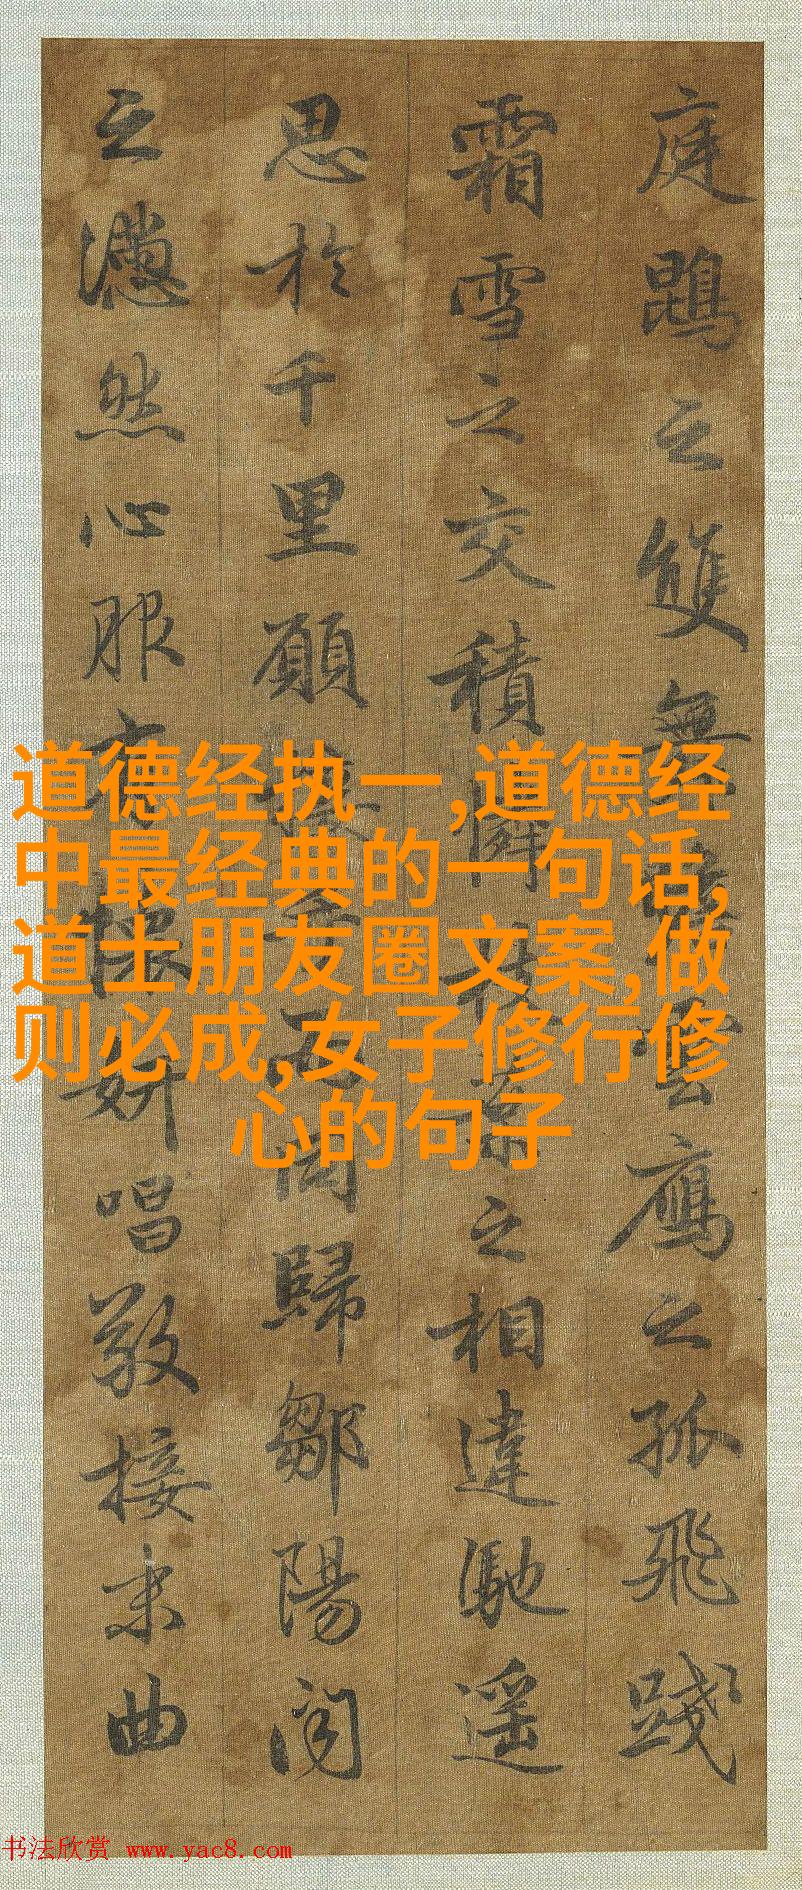 庭鵾之雙無
雲鴈之孤飛踐
霜雪之交積
之相違馳遥
思於千里願
歸鄒陽聞
之懣然心服
妍唱敬接末曲
道德经执一,道德经
中最经典的一句话,
道士朋友圈文案,做
则必成,女子修行修
心的句子
书法欣赏 www.yac8.com